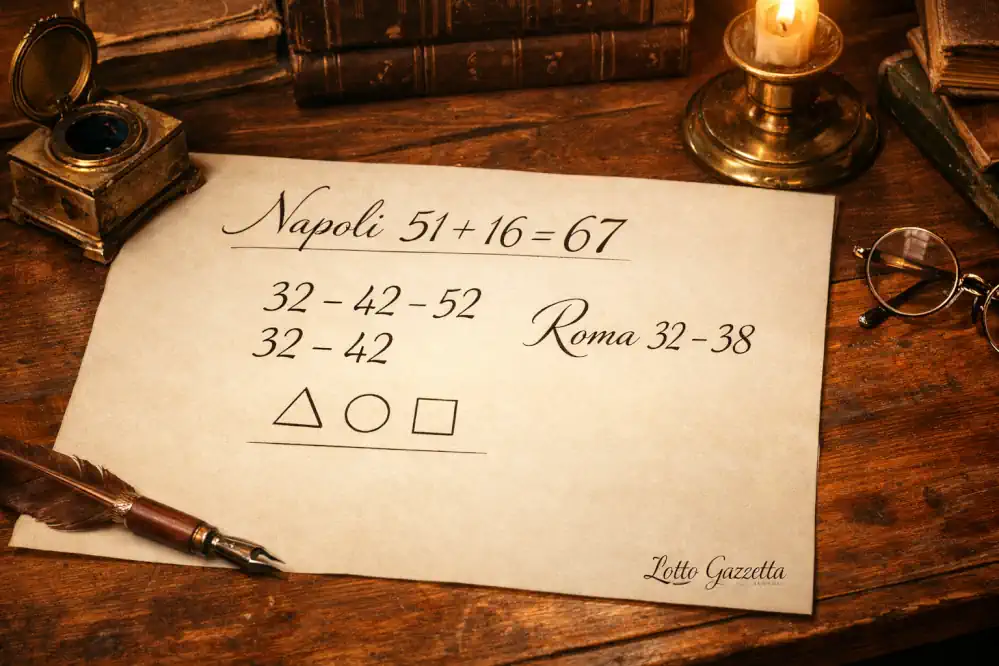 Napoli 51 + 16 = 67
32 – 42 – 52
32 – 42
Roma 32 – 38
Lotto Gazzetta